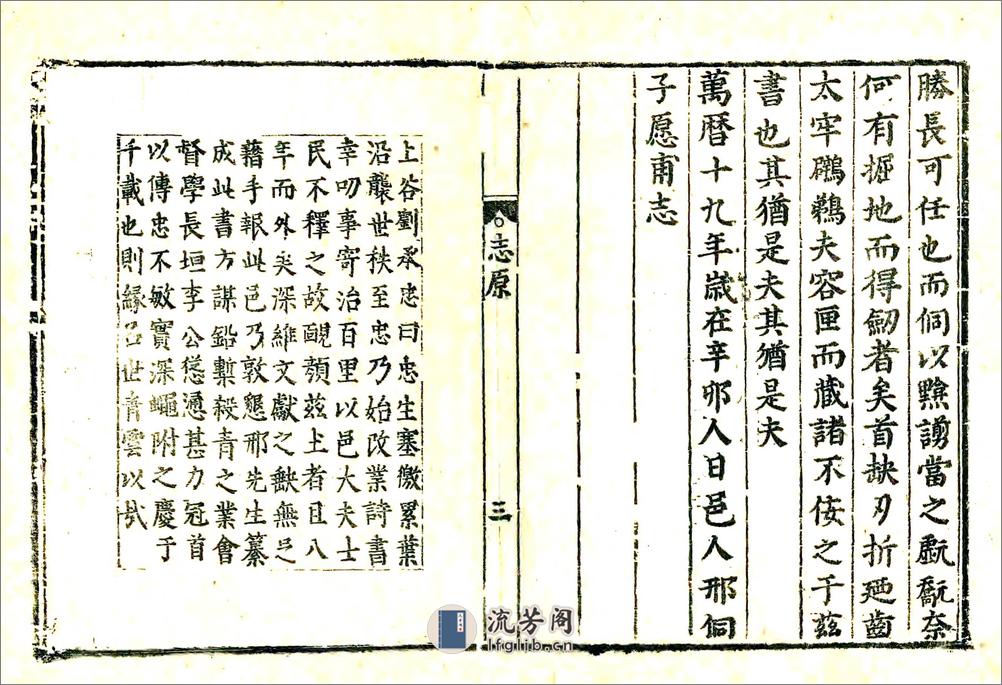 勝長可任也而侗以黥謭當之翫翫奈
何有掘地而得劒者矣首缺刃折廼齒
太牢鸊鵜夫容匣而蔵諸不侫之于茲
書也其猶是夫其猶是夫
萬曆十九年歲在辛卯人日邑人邢侗
子愿甫志
志原
三
上谷劉承忠曰忠生塞徼累葉
沿襲世秩至忠乃始改業詩書
幸叨事寄治百里以邑大夫士
民不釋之故靦顏茲上者且八
年而外矣深維文獻之缺無已
藉手報此邑乃敦懇邢先生纂
成此書方謀鉛槧殺青之業會
督學長垣李公慫慂甚力冠首
以傳忠不敏實深蠅附之慶于
千載也則緣名世青雲以哉
流芳阁
lfglib.cn